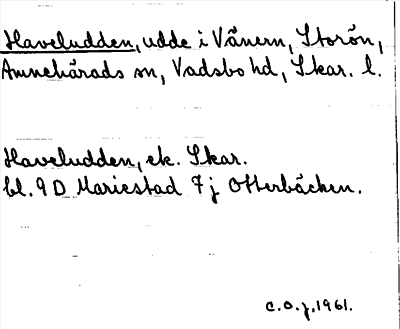 Haveludden, udde i Vänern, Storön,
Amnehärads sn, Vadsbo hd, Skar. l.
Haveludden, ek. Skar.
bl. 9 D Mariestad 7 j Otterbäcken.
C.O.J. 1961.